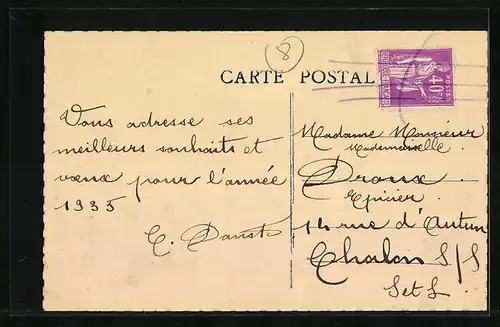 8
CARTE POSTALE
POSTES
40c
Vous adresse ses
meilleurs souhaits et
vœux pour l'année
1935
Madame Monsieur
Mademoiselle
Droux
Epicier
14 rue d'Autun
Chalon S/S
S et L